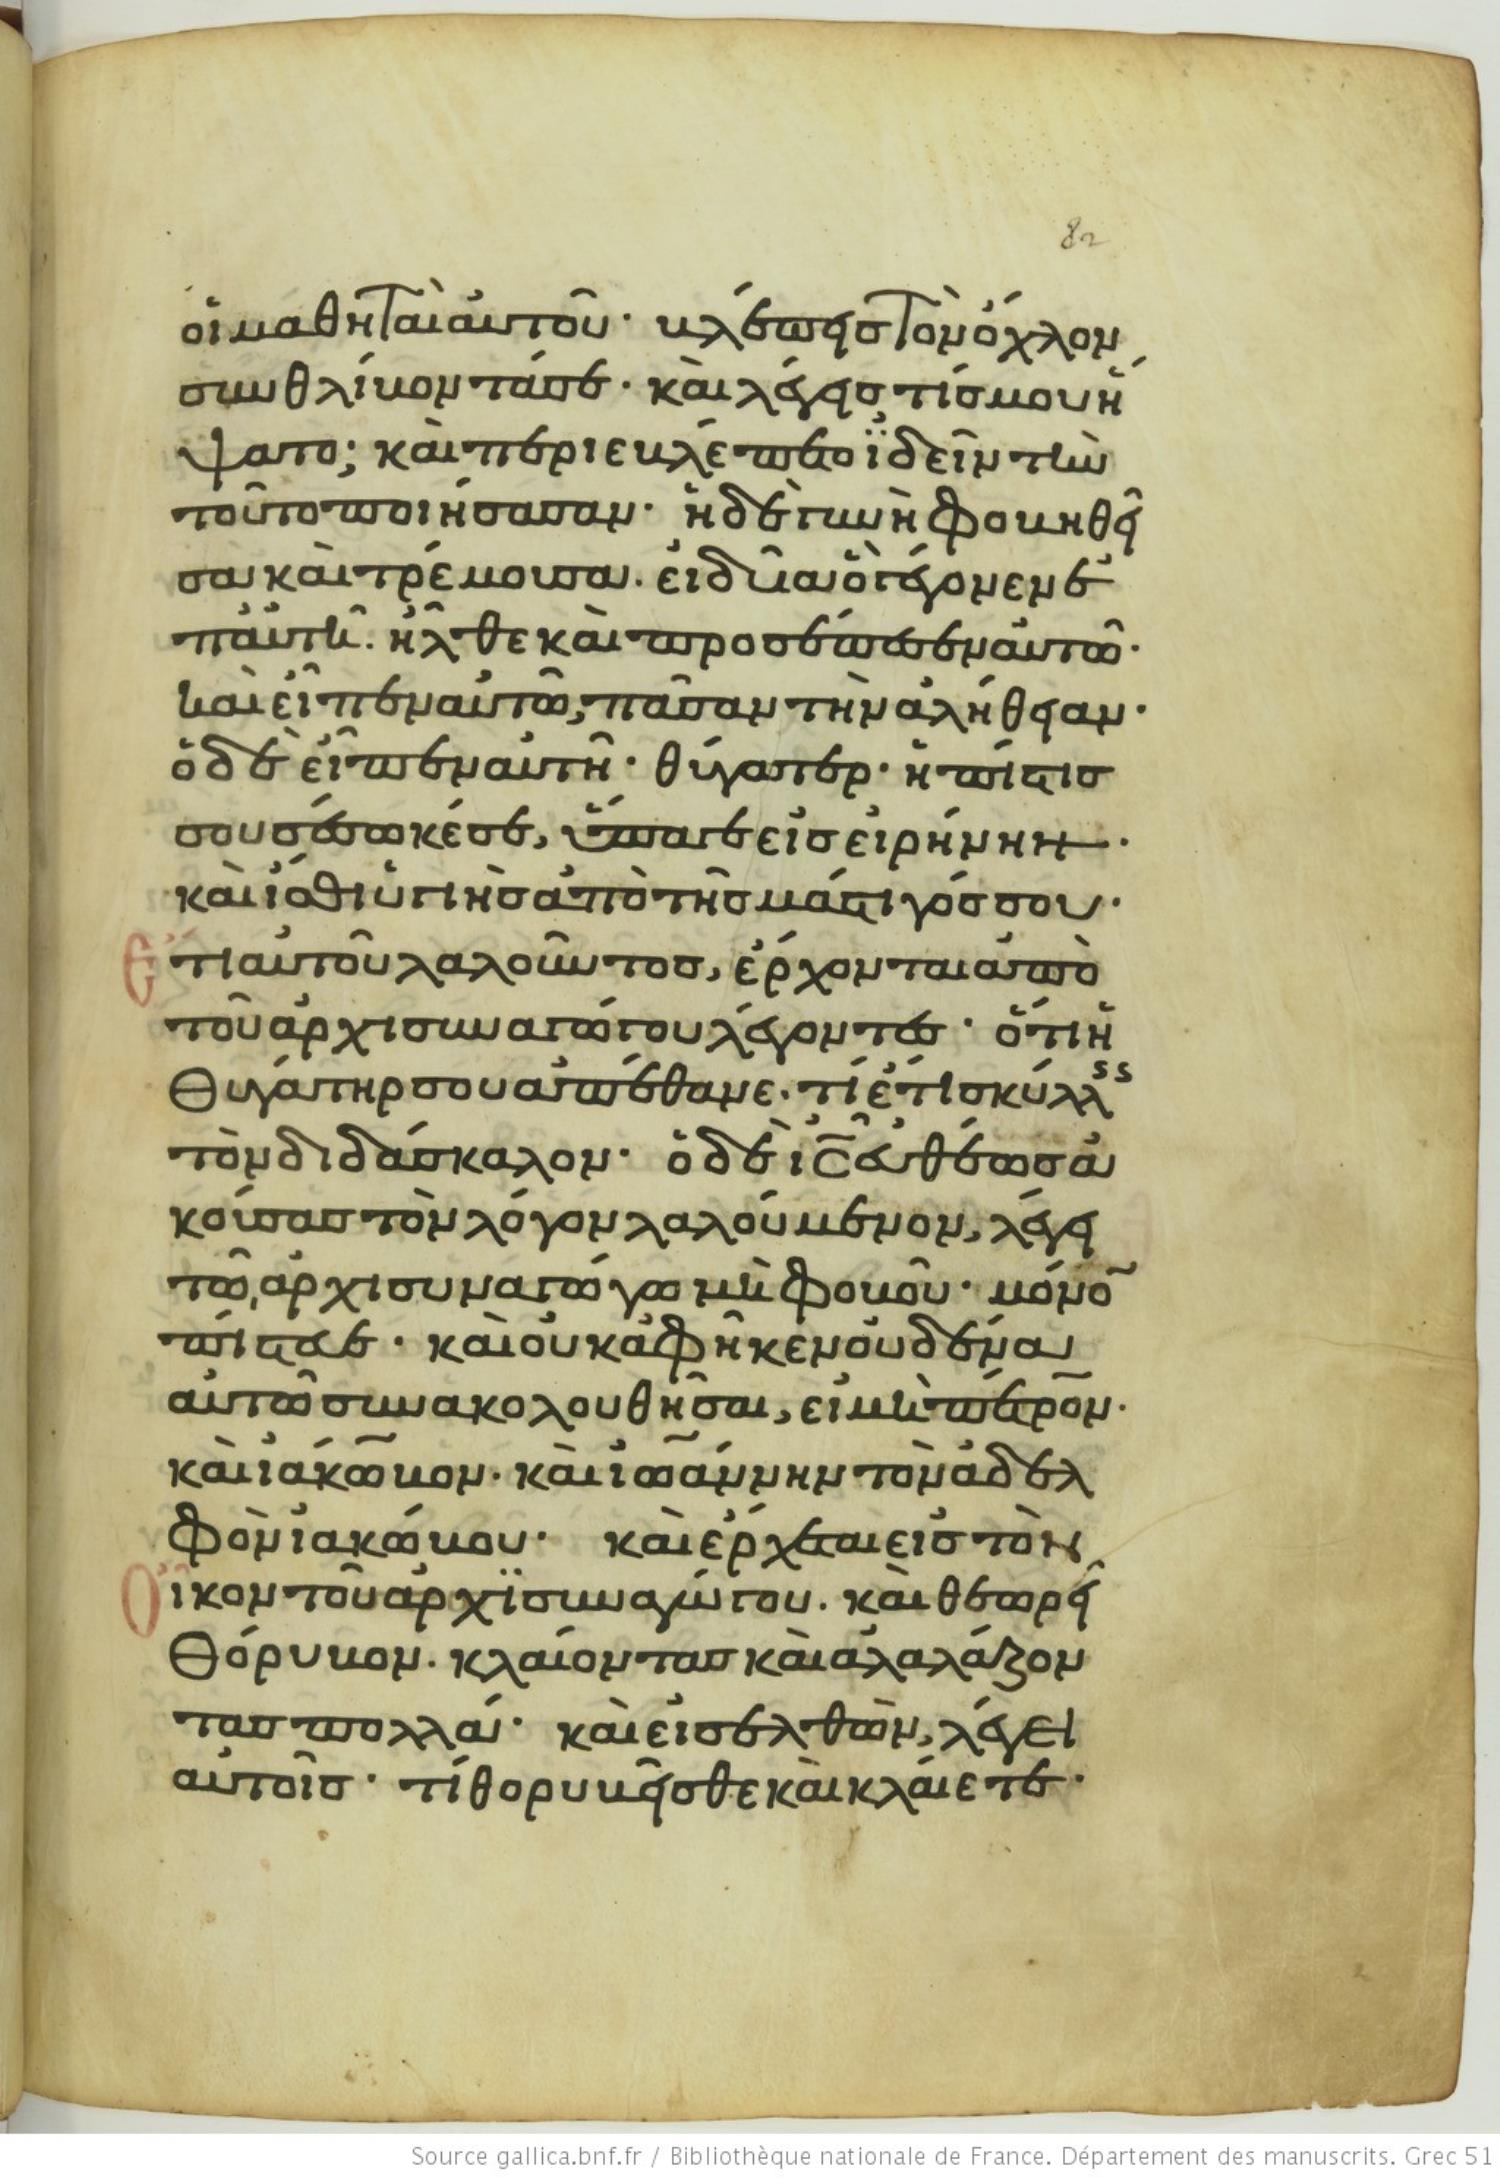 82
οἱ μαθηταὶ αὐτοῦ· βλέπεις τὸν ὄχλον
συνθλίβοντά σε· καὶ λέγεις τίς μου ἥ
ψατο; καὶ περιεβλέπετο ϊδεῖν τὴν
τοῦτο ποιήσασαν· ἡ δὲ γυνὴ φοβηθεῖ
σα καὶ τρέμουσα. εἰδυῖα ὃ γέγονεν ἐ
π' αὐτῆ. ἦλθε καὶ προσέπεσεν αὐτῶ·
καὶ εἶπεν αὐτῶ, πᾶσαν τὴν ἀλήθειαν·
ὁ δὲ εἶπεν αὐτῆ· θύγατερ· ἡ πίστις
σου σέσωκέ σε, ὕπαγε εἰς εἰρήνην·
καὶ ἴσθι ὑγιὴς ἀπὸ τῆς μάστιγός σου·
Ἔτι αὐτοῦ λαλοῦντος, ἔρχονται ἀπὸ
τοῦ ἀρχισυναγώγου λέγοντες· ὅτι ἡ
θυγάτηρ σου ἀπέθανε. τί ἔτι σκύλλεις
τὸν διδάσκαλον· ὁ δὲ ις εὐθέως ἀ
κούσας τὸν λόγον λαλούμενον, λέγει
τῶ ἀρχισυναγώγω μὴ φοβοῦ· μόνο
πίστευε· καὶ οὐκ ἀφῆκεν οὐδένα
αὐτῶ συνακολουθῆσαι, εἰ μὴ πέτρον·
καὶ ιάκωβον· καὶ ιωάννην τὸν ἀδελ
φὸν ιακώβου· καὶ ἔρχεται εἰς τὸν
Οἶκον τοῦ ἀρχϊσυναγώγου. καὶ θεωρεῖ
θόρυβον. κλαίοντας καὶ ἀλαλάζον
τας πολλά· καὶ εἰσελθὼν, λέγει
αὐτοῖς· τί θορυβεῖσθε καὶ κλαίετε·
Source gallica.bnf.fr / Bibliothèque nationale de France. Département des manuscrits. Grec 51